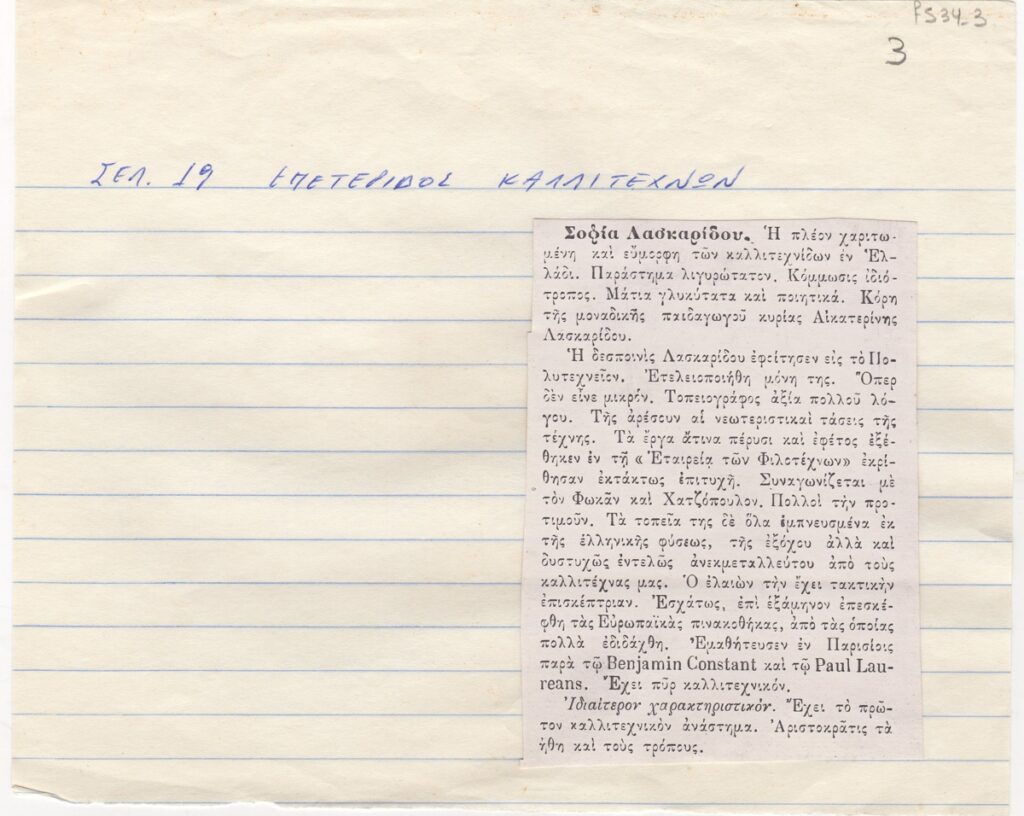 PS34_3
3
ΣΕΛ. 19 ΕΠΕΤΕΡΙΔΟΣ ΚΑΛΛΙΤΕΧΝΩΝ
Σοφία Λασκαρίδου. Ἡ πλέον χαριτω-
μένη καὶ εὔμορφη τῶν καλλιτεχνίδων ἐν Ἑλ-
λάδι. Παράστημα λιγυρώτατον. Κόμμωσις ἰδιό-
τροπος. Μάτια γλυκύτατα καὶ ποιητικά. Κόρη
τῆς μοναδικῆς παιδαγωγοῦ κυρίας Αἰκατερίνης
Λασκαρίδου.
Ἡ δεσποινὶς Λασκαρίδου ἐφοίτησεν εἰς τὸ Πο-
λυτεχνεῖον. Ἐτελειοποιήθη μόνη της. Ὅπερ
δὲν εἶνε μικρόν. Τοπειογράφος ἀξία πολλοῦ λό-
γου. Τῆς ἀρέσουν αἱ νεωτεριστικαὶ τάσεις τῆς
τέχνης. Τὰ ἔργα ἅτινα πέρυσι καὶ ἐφέτος ἐξέ-
θηκεν ἐν τῇ « Ἑταιρείᾳ τῶν Φιλοτέχνων» ἐκρί-
θησαν ἐκτάκτως ἐπιτυχῆ. Συναγωνίζεται μὲ
τὸν Φωκᾶν καὶ Χατζόπουλον. Πολλοὶ τὴν προ-
τιμοῦν. Τὰ τοπεῖα της δὲ ὅλα ἐμπνευσμένα ἐκ
τῆς ἑλληνικῆς φύσεως, τῆς ἐξόχου ἀλλὰ καὶ
δυστυχῶς ἐντελῶς ἀνεκμεταλλεύτου ἀπὸ τοὺς
καλλιτέχνας μας. Ὁ ἐλαιὼν τὴν ἔχει τακτικὴν
ἐπισκέπτριαν. Ἐσχάτως, ἐπὶ ἑξάμηνον ἐπεσκέ-
φθη τὰς Εὐρωπαϊκὰς πινακοθήκας, ἀπὸ τὰς ὁποίας
πολλὰ ἐδιδάχθη. Ἐμαθήτευσεν ἐν Παρισίοις
παρὰ τῷ Benjamin Constant καὶ τῷ Paul Lau-
reans. Ἔχει πῦρ καλλιτεχνικόν.
Ἰδιαίτερον χαρακτηριστικόν. Ἔχει τὸ πρῶ-
τον καλλιτεχνικὸν ἀνάστημα. Ἀριστοκράτις τὰ
ἤθη καὶ τοὺς τρόπους.